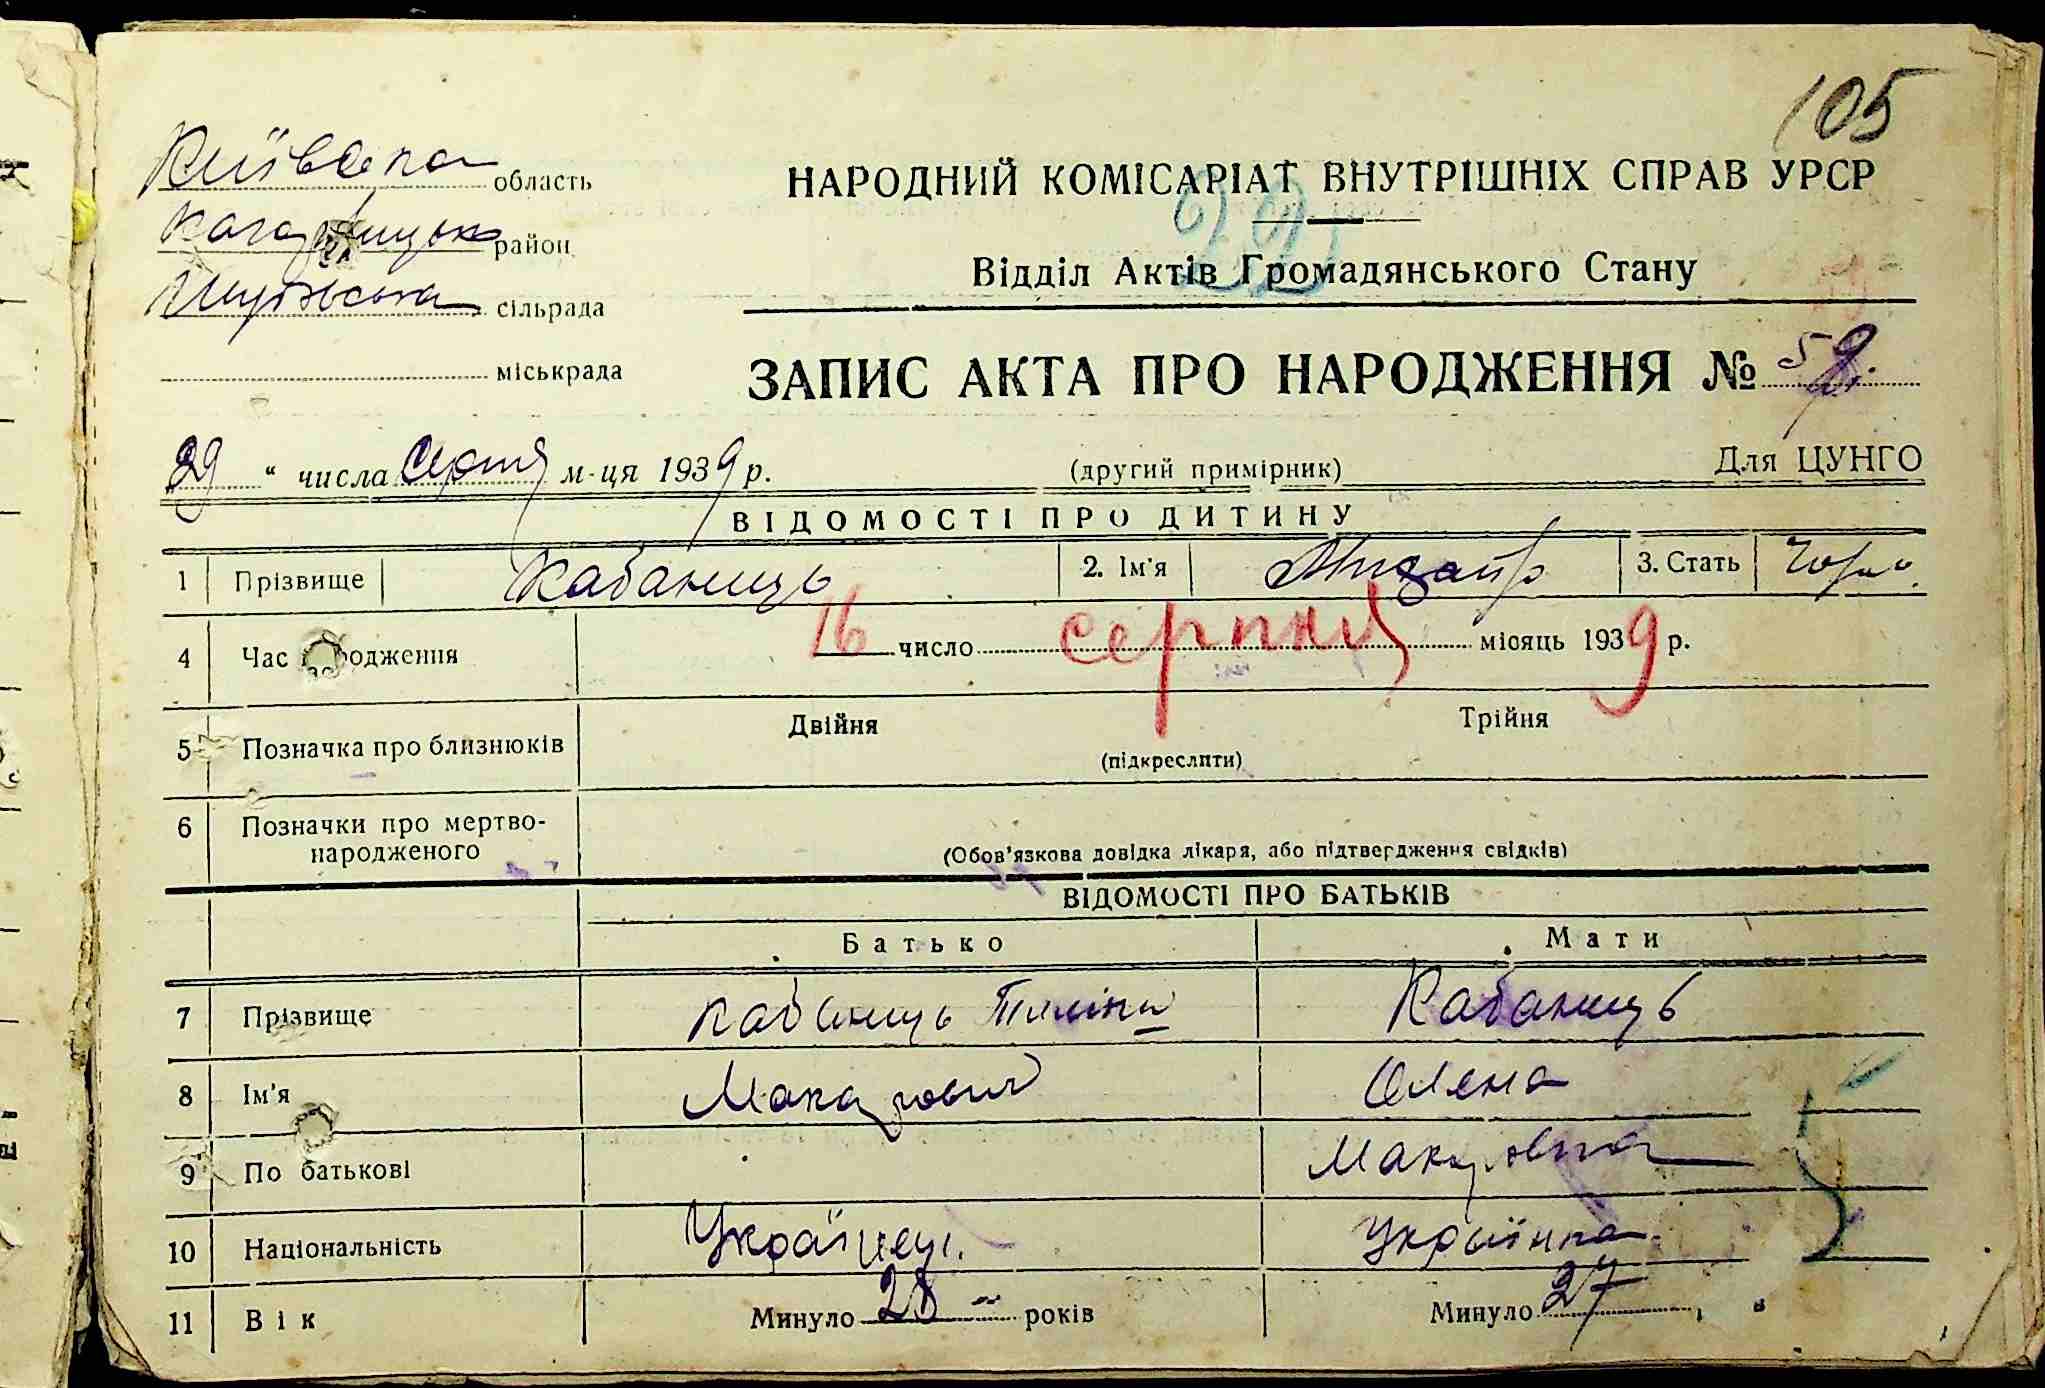 105
Київська область
НАРОДНИЙ КОМІСАРІАТ ВНУТРІШНІХ СПРАВ УРСР
район
22
Відділ Актів Громадянського Стану
сільрада
міськрада
ЗАПИС АКТА ПРО НАРОДЖЕННЯ №
29 " числа серпня м-ця 1939 р.
(другий примірник)
Для ЦУНГО
ВІДОМОСТІ ПРО ДИТИНУ
1 Прізвище Кабанець 2. Ім'я 3. Стать
4 Час народження 16 число серпня місяць 1939 р.
5 Позначка про близнюків Двійня Трійня
(підкреслити)
6 Позначки про мертво-
народженого (Обов'язкова довідка лікаря, або підтвердження свідків)
ВІДОМОСТІ ПРО БАТЬКІВ
Батько Мати
7 Прізвище Кабанець Кабанець
8 Ім'я Макарович Олена
9 По батькові Макаровна
10 Національність Українець. Українка.
11 Вік Минуло 28 років Минуло 27 "